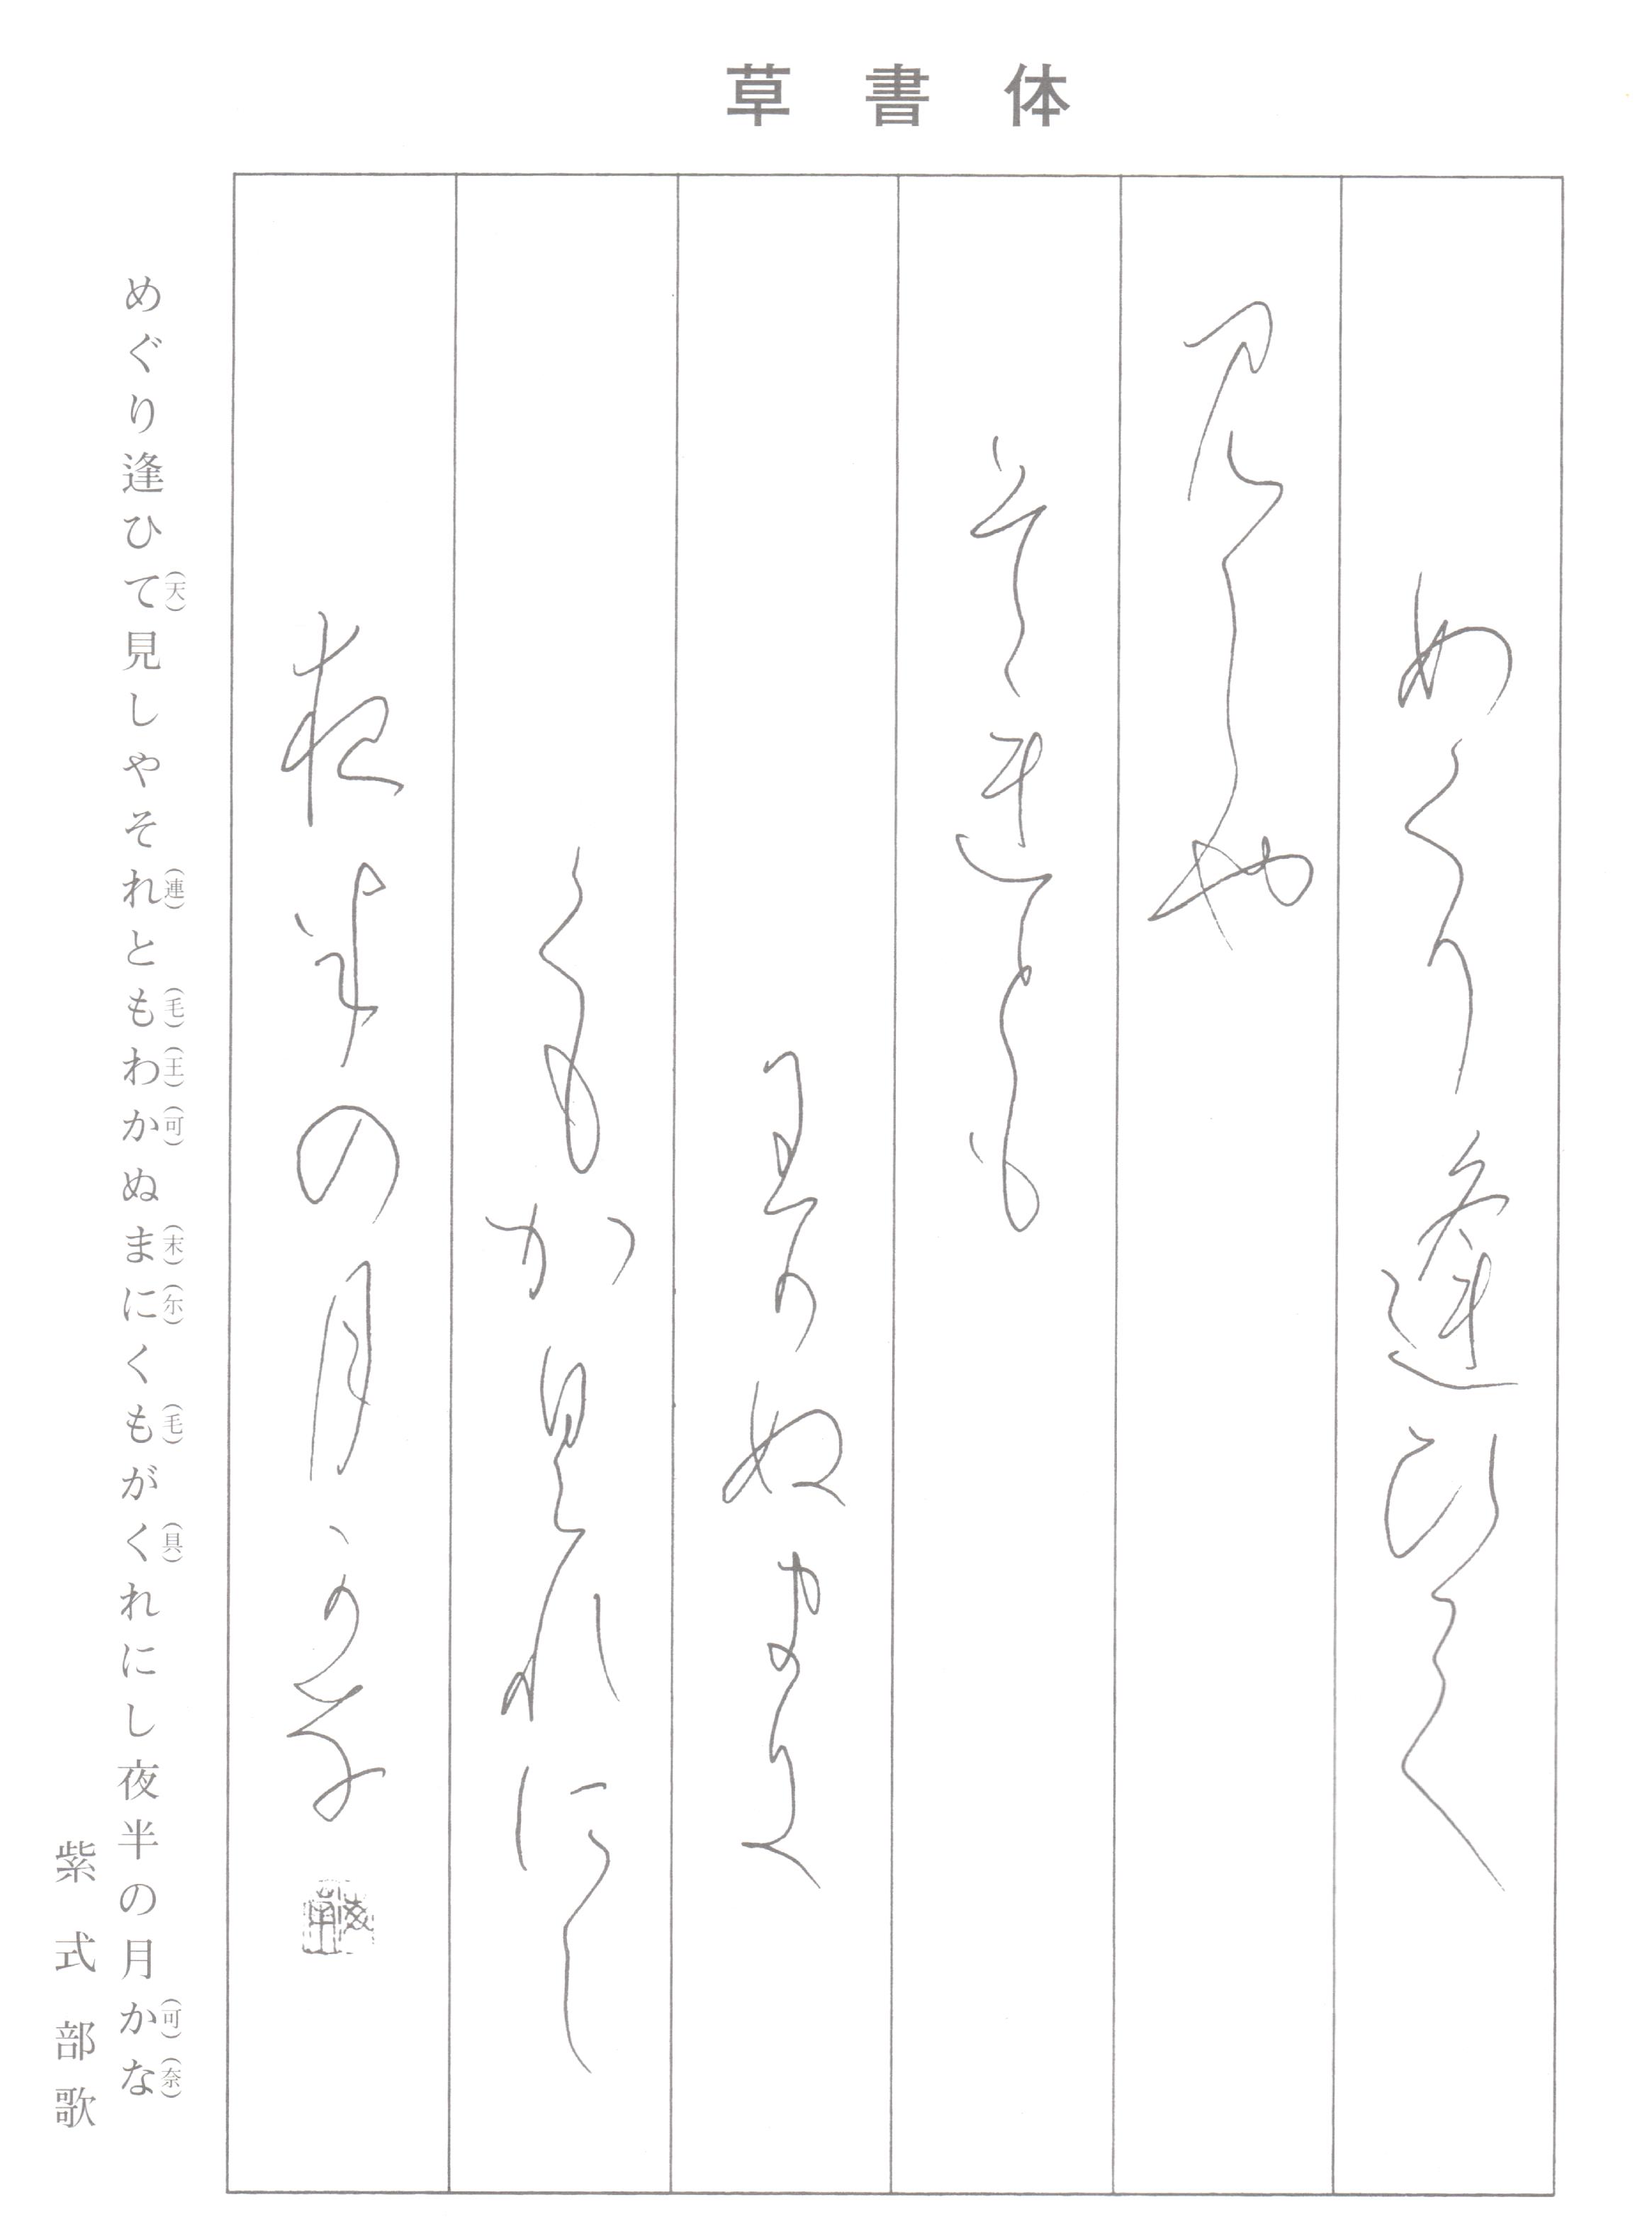 草書体
めくり逢ひて
見しや
それとも
わかぬまに
くもかくれにし
夜半の月かな
めぐり逢ひて(天)見しやそれ(連)とも(毛)わ(王)か(可)ぬま(末)に(尓)くも(毛)がく(具)れにし夜半の月か(可)な(奈)
紫式部歌